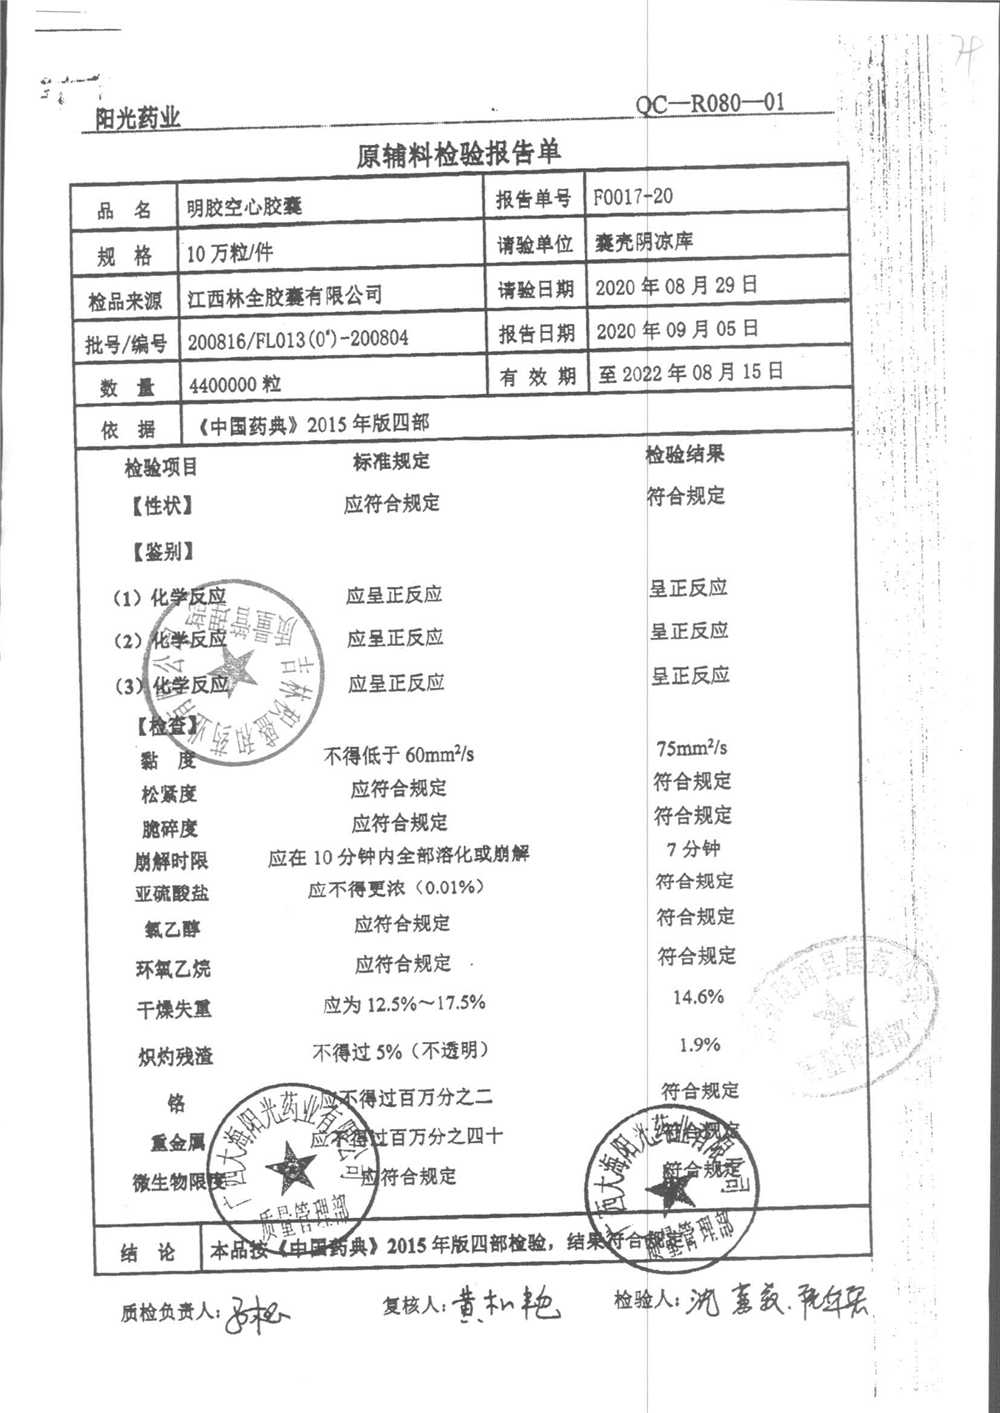 阳光药业 QC—R080—01
原辅料检验报告单
品 名 明胶空心胶囊 报告单号 F0017-20
规 格 10万粒/件 请验单位 囊壳阴凉库
检品来源 江西林全胶囊有限公司 请验日期 2020年08月29日
批号/编号 200816/FL013(0#)-200804 报告日期 2020年09月05日
数 量 4400000粒 有 效 期 至2022年08月15日
依 据 《中国药典》2015年版四部
检验项目 标准规定 检验结果
【性状】 应符合规定 符合规定
【鉴别】
（1）化学反应 应呈正反应 呈正反应
（2）化学反应 应呈正反应 呈正反应
（3）化学反应 应呈正反应 呈正反应
【检查】
黏 度 不得低于60mm²/s 75mm²/s
松紧度 应符合规定 符合规定
脆碎度 应符合规定 符合规定
崩解时限 应在10分钟内全部溶化或崩解 7分钟
亚硫酸盐 应不得更浓（0.01%） 符合规定
氯乙醇 应符合规定 符合规定
环氧乙烷 应符合规定 符合规定
干燥失重 应为12.5%～17.5% 14.6%
炽灼残渣 不得过5%（不透明） 1.9%
铬 应不得过百万分之二 符合规定
重金属 应不得过百万分之四十 符合规定
微生物限度 应符合规定 符合规定
结 论 本品按《中国药典》2015年版四部检验，结果符合规定
质检负责人： 复核人：黄松艳 检验人：
吉林积盛和药业有限公司
质量管理部
广西大海阳光药业有限公司
质量管理部
广西大海阳光药业有限公司
质量管理部